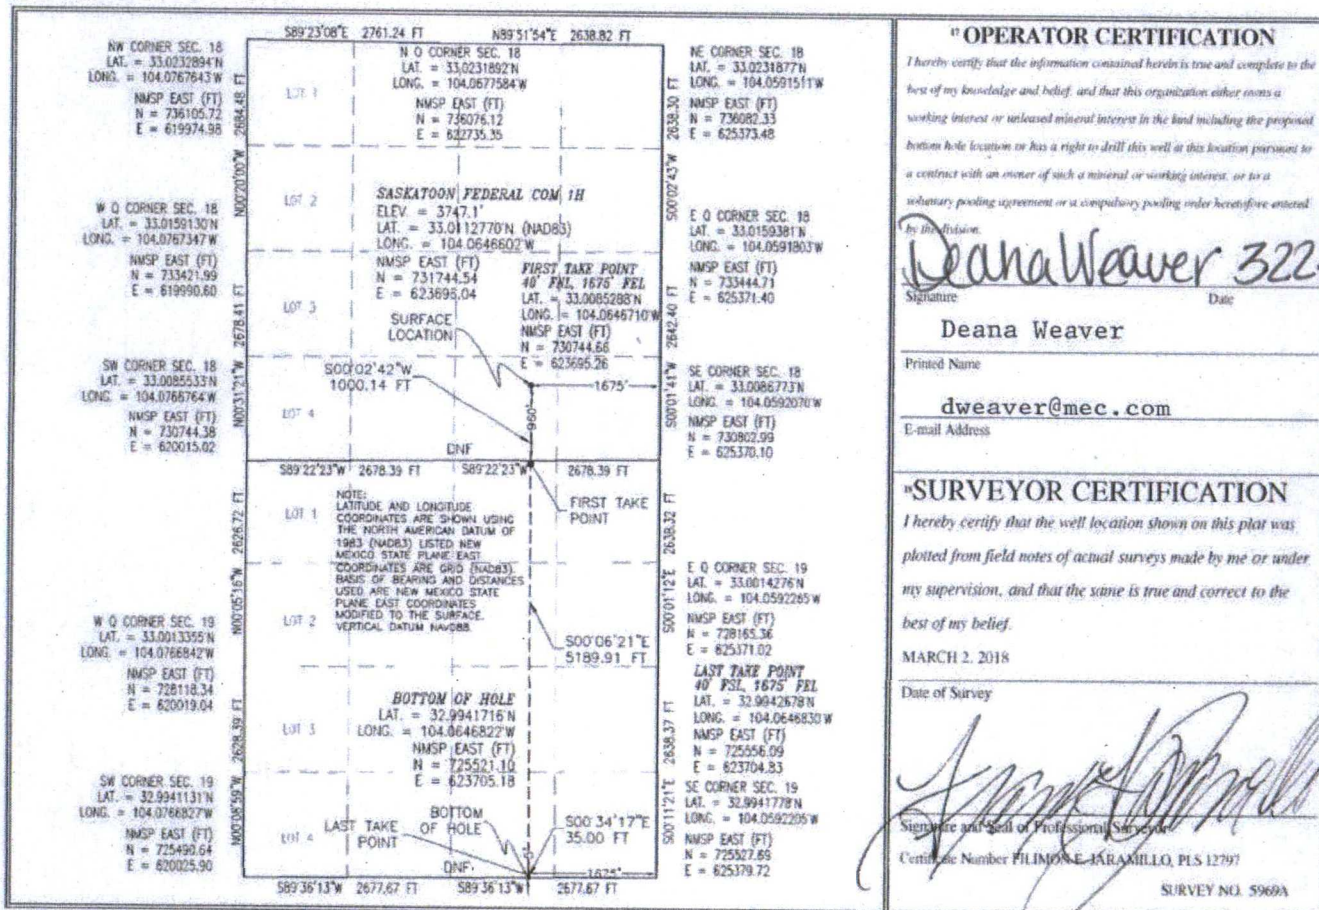 S89°23'08"E 2761.24 FT N89°51'54"E 2638.82 FT
NW CORNER SEC. 18
LAT. = 33.0232894'N
LONG. = 104.0767643'W
NMSP EAST (FT)
N = 736105.72
E = 619974.98
N Q CORNER SEC. 18
LAT. = 33.0231892'N
LONG. = 104.0677584'W
NMSP EAST (FT)
N = 736076.12
E = 622735.35
NE CORNER SEC. 18
LAT. = 33.0231877'N
LONG. = 104.0591511'W
NMSP EAST (FT)
N = 736082.33
E = 625373.48
N00°20'00"W 2684.48 FT
LOT 1
S00°02'43"W 2638.30 FT
W Q CORNER SEC. 18
LAT. = 33.0159130'N
LONG. = 104.0767347'W
NMSP EAST (FT)
N = 733421.99
E = 619990.60
LOT 2
SASKATOON FEDERAL COM 1H
ELEV. = 3747.1'
LAT. = 33.0112770'N (NAD83)
LONG. = 104.0646602'W
NMSP EAST (FT)
N = 731744.54
E = 623695.04
E Q CORNER SEC. 18
LAT. = 33.0159381'N
LONG. = 104.0591803'W
NMSP EAST (FT)
N = 733444.71
E = 625371.40
FIRST TAKE POINT
40' FNL, 1675' FEL
LAT. = 33.0085288'N
LONG. = 104.0646710'W
NMSP EAST (FT)
N = 730744.66
E = 623695.26
N00°31'21"W 2678.41 FT
LOT 3
SURFACE
LOCATION
S00°01'41"W 2642.40 FT
SW CORNER SEC. 18
LAT. = 33.0085533'N
LONG. = 104.0766764'W
NMSP EAST (FT)
N = 730744.38
E = 620015.02
S00°02'42"W
1000.14 FT
LOT 4
1675'
960'
DNF
SE CORNER SEC. 18
LAT. = 33.0086773'N
LONG. = 104.0592070'W
NMSP EAST (FT)
N = 730802.99
E = 625370.10
S89°22'23"W 2678.39 FT S89°22'23"W 2678.39 FT
N00°05'16"W 2626.72 FT
LOT 1
NOTE:
LATITUDE AND LONGITUDE
COORDINATES ARE SHOWN USING
THE NORTH AMERICAN DATUM OF
1983 (NAD83) LISTED NEW
MEXICO STATE PLANE EAST
COORDINATES ARE GRID (NAD83).
BASIS OF BEARING AND DISTANCES
USED ARE NEW MEXICO STATE
PLANE EAST COORDINATES
MODIFIED TO THE SURFACE.
VERTICAL DATUM NAVD88.
FIRST TAKE
POINT
S00°01'12"E 2638.32 FT
LOT 2
E Q CORNER SEC. 19
LAT. = 33.0014276'N
LONG. = 104.0592265'W
NMSP EAST (FT)
N = 728165.36
E = 625371.02
W Q CORNER SEC. 19
LAT. = 33.0013355'N
LONG. = 104.0766842'W
NMSP EAST (FT)
N = 728118.34
E = 620019.04
S00°06'21"E
5189.91 FT
LAST TAKE POINT
40' FSL, 1675' FEL
LAT. = 32.9942678'N
LONG. = 104.0646830'W
NMSP EAST (FT)
N = 725556.09
E = 623704.83
N00°08'59"W 2628.39 FT
LOT 3
BOTTOM OF HOLE
LAT. = 32.9941716'N
LONG. = 104.0646822'W
NMSP EAST (FT)
N = 725521.10
E = 623705.18
S00°11'21"E 2638.37 FT
SW CORNER SEC. 19
LAT. = 32.9941131'N
LONG. = 104.0766827'W
NMSP EAST (FT)
N = 725490.64
E = 620025.90
LOT 4
LAST TAKE
POINT
BOTTOM
OF HOLE
DNF
S00°34'17"E
35.00 FT
1675'
SE CORNER SEC. 19
LAT. = 32.9941778'N
LONG. = 104.0592205'W
NMSP EAST (FT)
N = 725527.69
E = 625379.72
S89°36'13"W 2677.67 FT S89°36'13"W 2677.67 FT
17 OPERATOR CERTIFICATION
I hereby certify that the information contained herein is true and complete to the
best of my knowledge and belief, and that this organization either owns a
working interest or unleased mineral interest in the land including the proposed
bottom hole location or has a right to drill this well at this location pursuant to
a contract with an owner of such a mineral or working interest, or to a
voluntary pooling agreement or a compulsory pooling order heretofore entered
by the division.
Deana Weaver 322
Signature Date
Deana Weaver
Printed Name
dweaver@mec.com
E-mail Address
18 SURVEYOR CERTIFICATION
I hereby certify that the well location shown on this plat was
plotted from field notes of actual surveys made by me or under
my supervision, and that the same is true and correct to the
best of my belief.
MARCH 2, 2018
Date of Survey
Signature and Seal of Professional Surveyor
Certificate Number FILIMON E. JARAMILLO, PLS 12797
SURVEY NO. 5969A